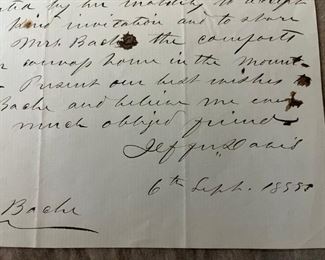 by his inability to accept
kind invitation and to share
Mrs Bache the comforts
canvas home in the mount
Present our best wishes to
Bache and believe me ever
much obliged friend
Jeffn. Davis
6th Sept. 1855
Bache